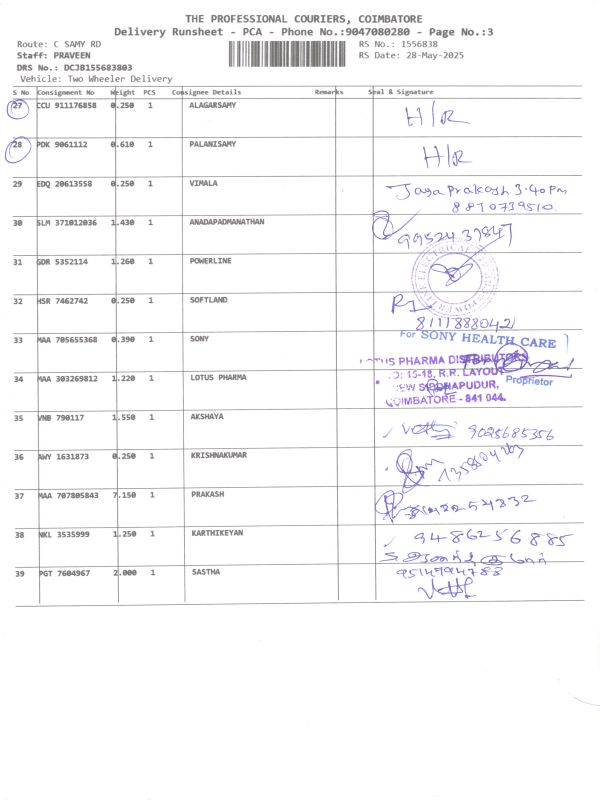 THE PROFESSIONAL COURIERS, COIMBATORE
Delivery Runsheet - PCA - Phone No.:9047080280 - Page No.:3
Route: C SAMY RD RS No.: 1556838
Staff: PRAVEEN RS Date: 28-May-2025
DRS No.: DCJB155683803
Vehicle: Two Wheeler Delivery
S No Consignment No Weight PCS Consignee Details Remarks Seal & Signature
27 CCU 911176858 0.250 1 ALAGARSAMY H/R
28 PDK 9061112 0.610 1 PALANISAMY H/R
29 EDQ 20613558 0.250 1 VIMALA Jaya Prakash 3.40 Pm
8870739510
30 SLM 371012036 1.430 1 ANADAPADMANATHAN
31 GDR 5352114 1.260 1 POWERLINE
ELECTRICAL
32 HSR 7462742 0.250 1 SOFTLAND
8111888042
33 MAA 705655368 0.390 1 SONY For SONY HEALTH CARE
Proprietor
34 MAA 303269812 1.220 1 LOTUS PHARMA LOTUS PHARMA DISTRIBUTORS
15-18, R.R. LAYOUT
SIDDHAPUDUR,
COIMBATORE - 641 044.
35 VNB 790117 1.550 1 AKSHAYA 9025685356
36 AWY 1631873 0.250 1 KRISHNAKUMAR
37 MAA 707805843 7.150 1 PRAKASH
38 NKL 3535999 1.250 1 KARTHIKEYAN 9486256885
39 PGT 7604967 2.000 1 SASTHA 9514994788